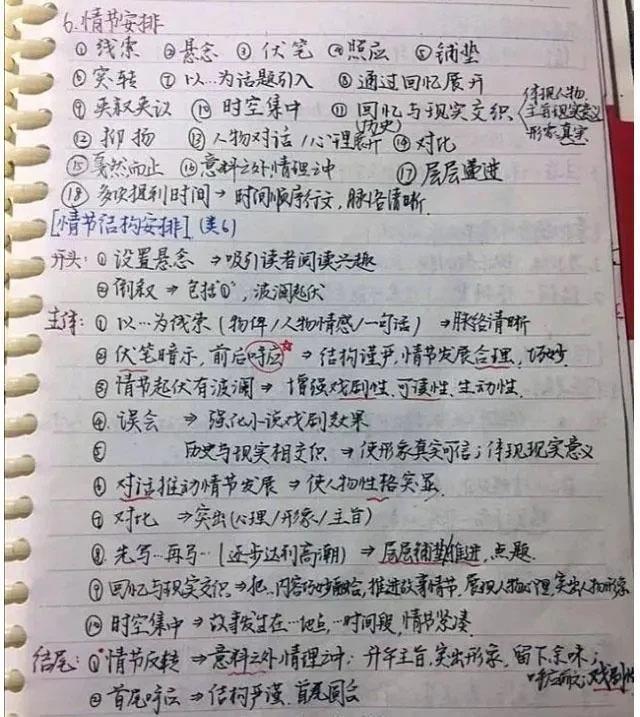 6.情节安排
①线索 ②悬念 ③伏笔 ④照应 ⑤铺垫
⑥突转 ⑦以…为话题引入 ⑧通过回忆展开
⑨夹叙夹议 ⑩时空集中 ⑪回忆与现实交织 (历史) 体现人物 主旨现实意义 形象真实
⑫抑扬 ⑬人物对话/心理展开 ⑭对比
⑮戛然而止 ⑯意料之外情理之中 ⑰层层递进
⑱多次提到时间→时间顺序行文,脉络清晰.
[情节结构安排](类6)
开头:①设置悬念→吸引读者阅读兴趣
②倒叙→包括①,波澜起伏
主体:①以…为线索(物件/人物情感/一句话)→脉络清晰
②伏笔暗示,前后呼应→结构严谨,情节发展合理,巧妙
③情节起伏有波澜→增强戏剧性、可读性、生动性.
④误会→强化小说戏剧效果
⑤历史与现实相交织→使形象真实可信;体现现实意义
⑥对话推动情节发展→使人物性格突显.
⑦对比→突出(心理/形象/主旨)
⑧先写…再写…(逐步达到高潮)→层层铺垫推进,点题.
⑨回忆与现实交织→把…内容巧妙融合,推进故事情节,展现人物心理,突出人物形象
⑩时空集中→故事发生在…地点,…时间段,情节紧凑.
结尾:①情节反转→意料之外情理之中;升华主旨,突出形象,留下余味;
呼应前文;戏剧性
②首尾呼应→结构严谨.首尾圆合